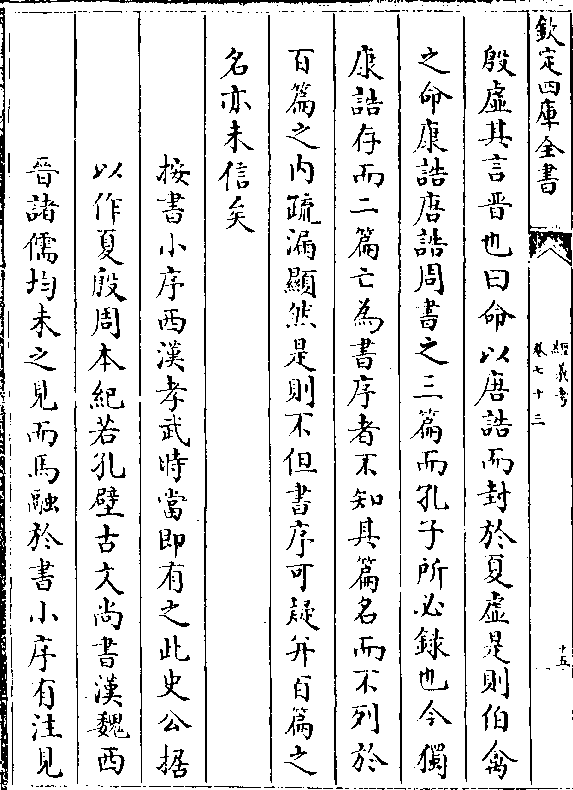 欽定四庫全書
經義考
卷七十三
十五
殷虛其言晉也曰命以唐誥而封於夏虛是則伯禽
之命康誥唐誥周書之三篇而孔子所必錄也今獨
康誥存而二篇亡為書序者不知其篇名而不列於
百篇之內疏漏顯然是則不但書序可疑并百篇之
名亦未信矣
按書小序西漢孝武時當即有之此史公據
以作夏殷周本紀若孔壁古文尚書漢魏西
晉諸儒均未之見而馬融於書小序有注見